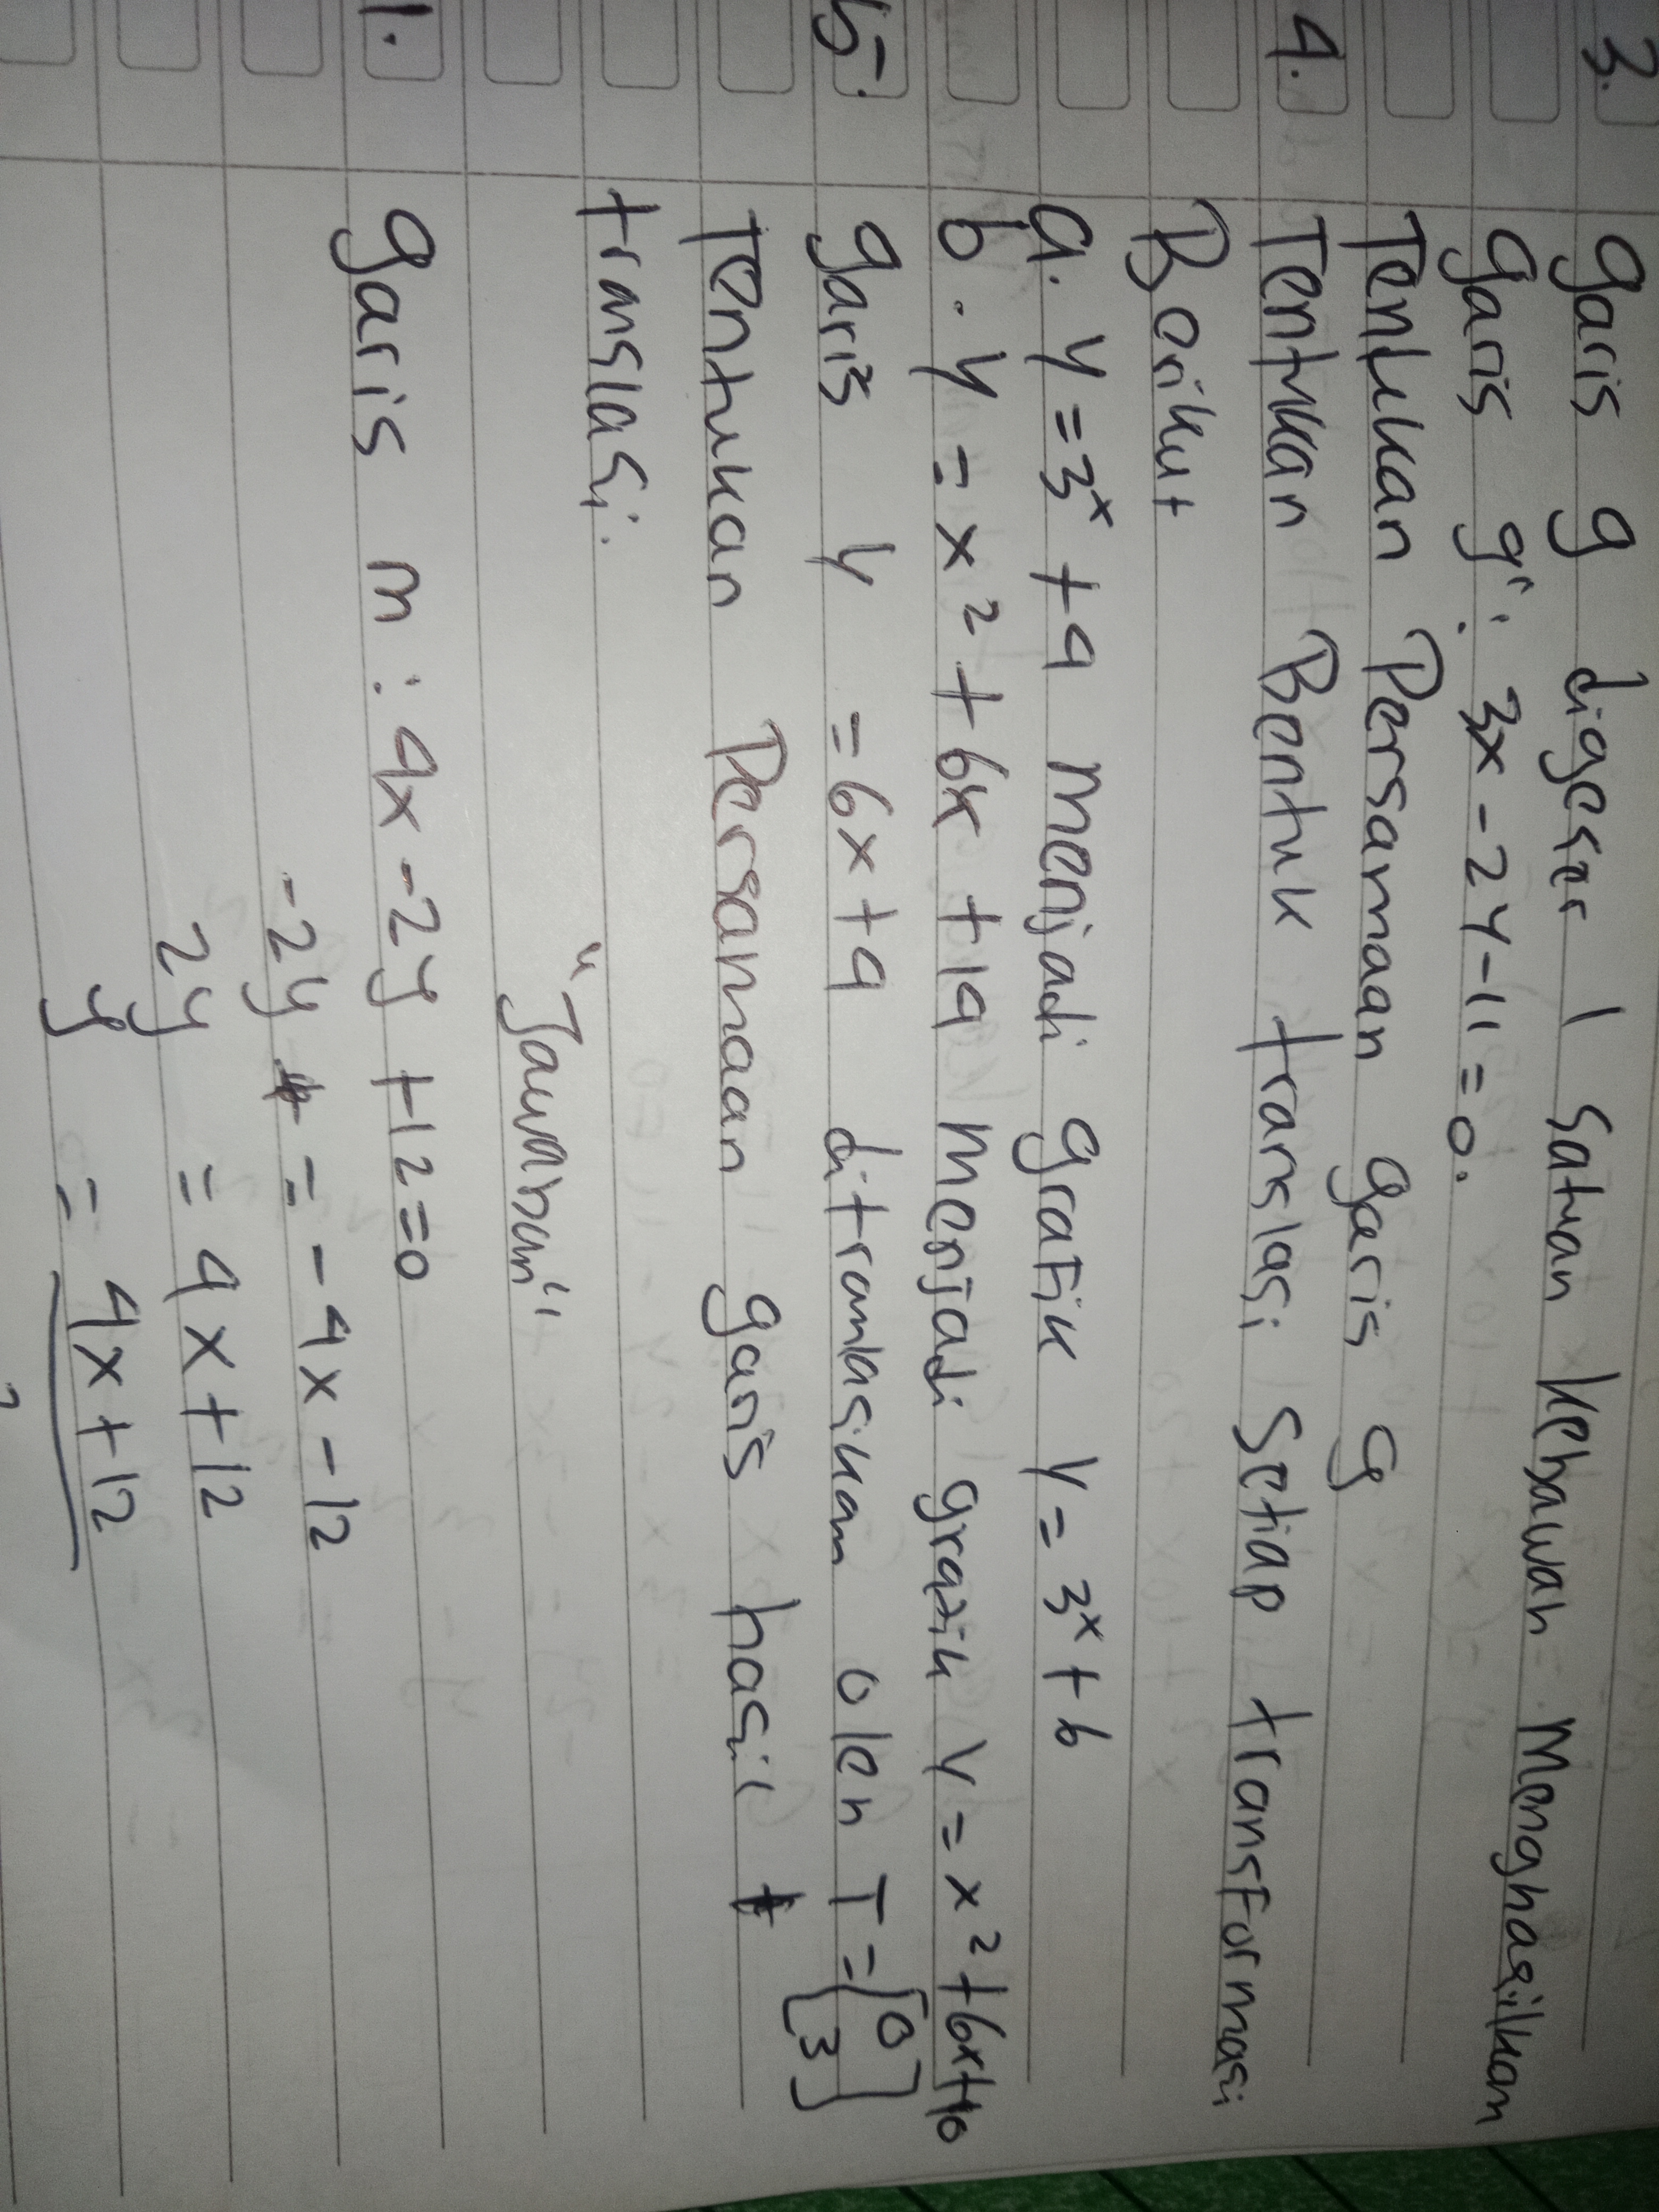 3. garis g digeser 1 satuan kebawah menghasilkan
garis g': 3x - 2y - 11 = 0.
Tentukan Persamaan garis g
4. Tentukan Bentuk translasi setiap transFormasi
Berikut
a. y = 3ˣ + 4 menjadi graFik y = 3ˣ + 6
b. y = x² + 6x + 14 menjadi grafik y = x² + 6x + 10
5. garis y = 6x + 9 ditranlasikan oleh T = [0 3]
Tentukan Persamaan garis hasil
translasi.
"Jawaban"
1. garis m : 4x - 2y + 12 = 0
-2y = -4x - 12
2y = 4x + 12
y = 4x + 12
2